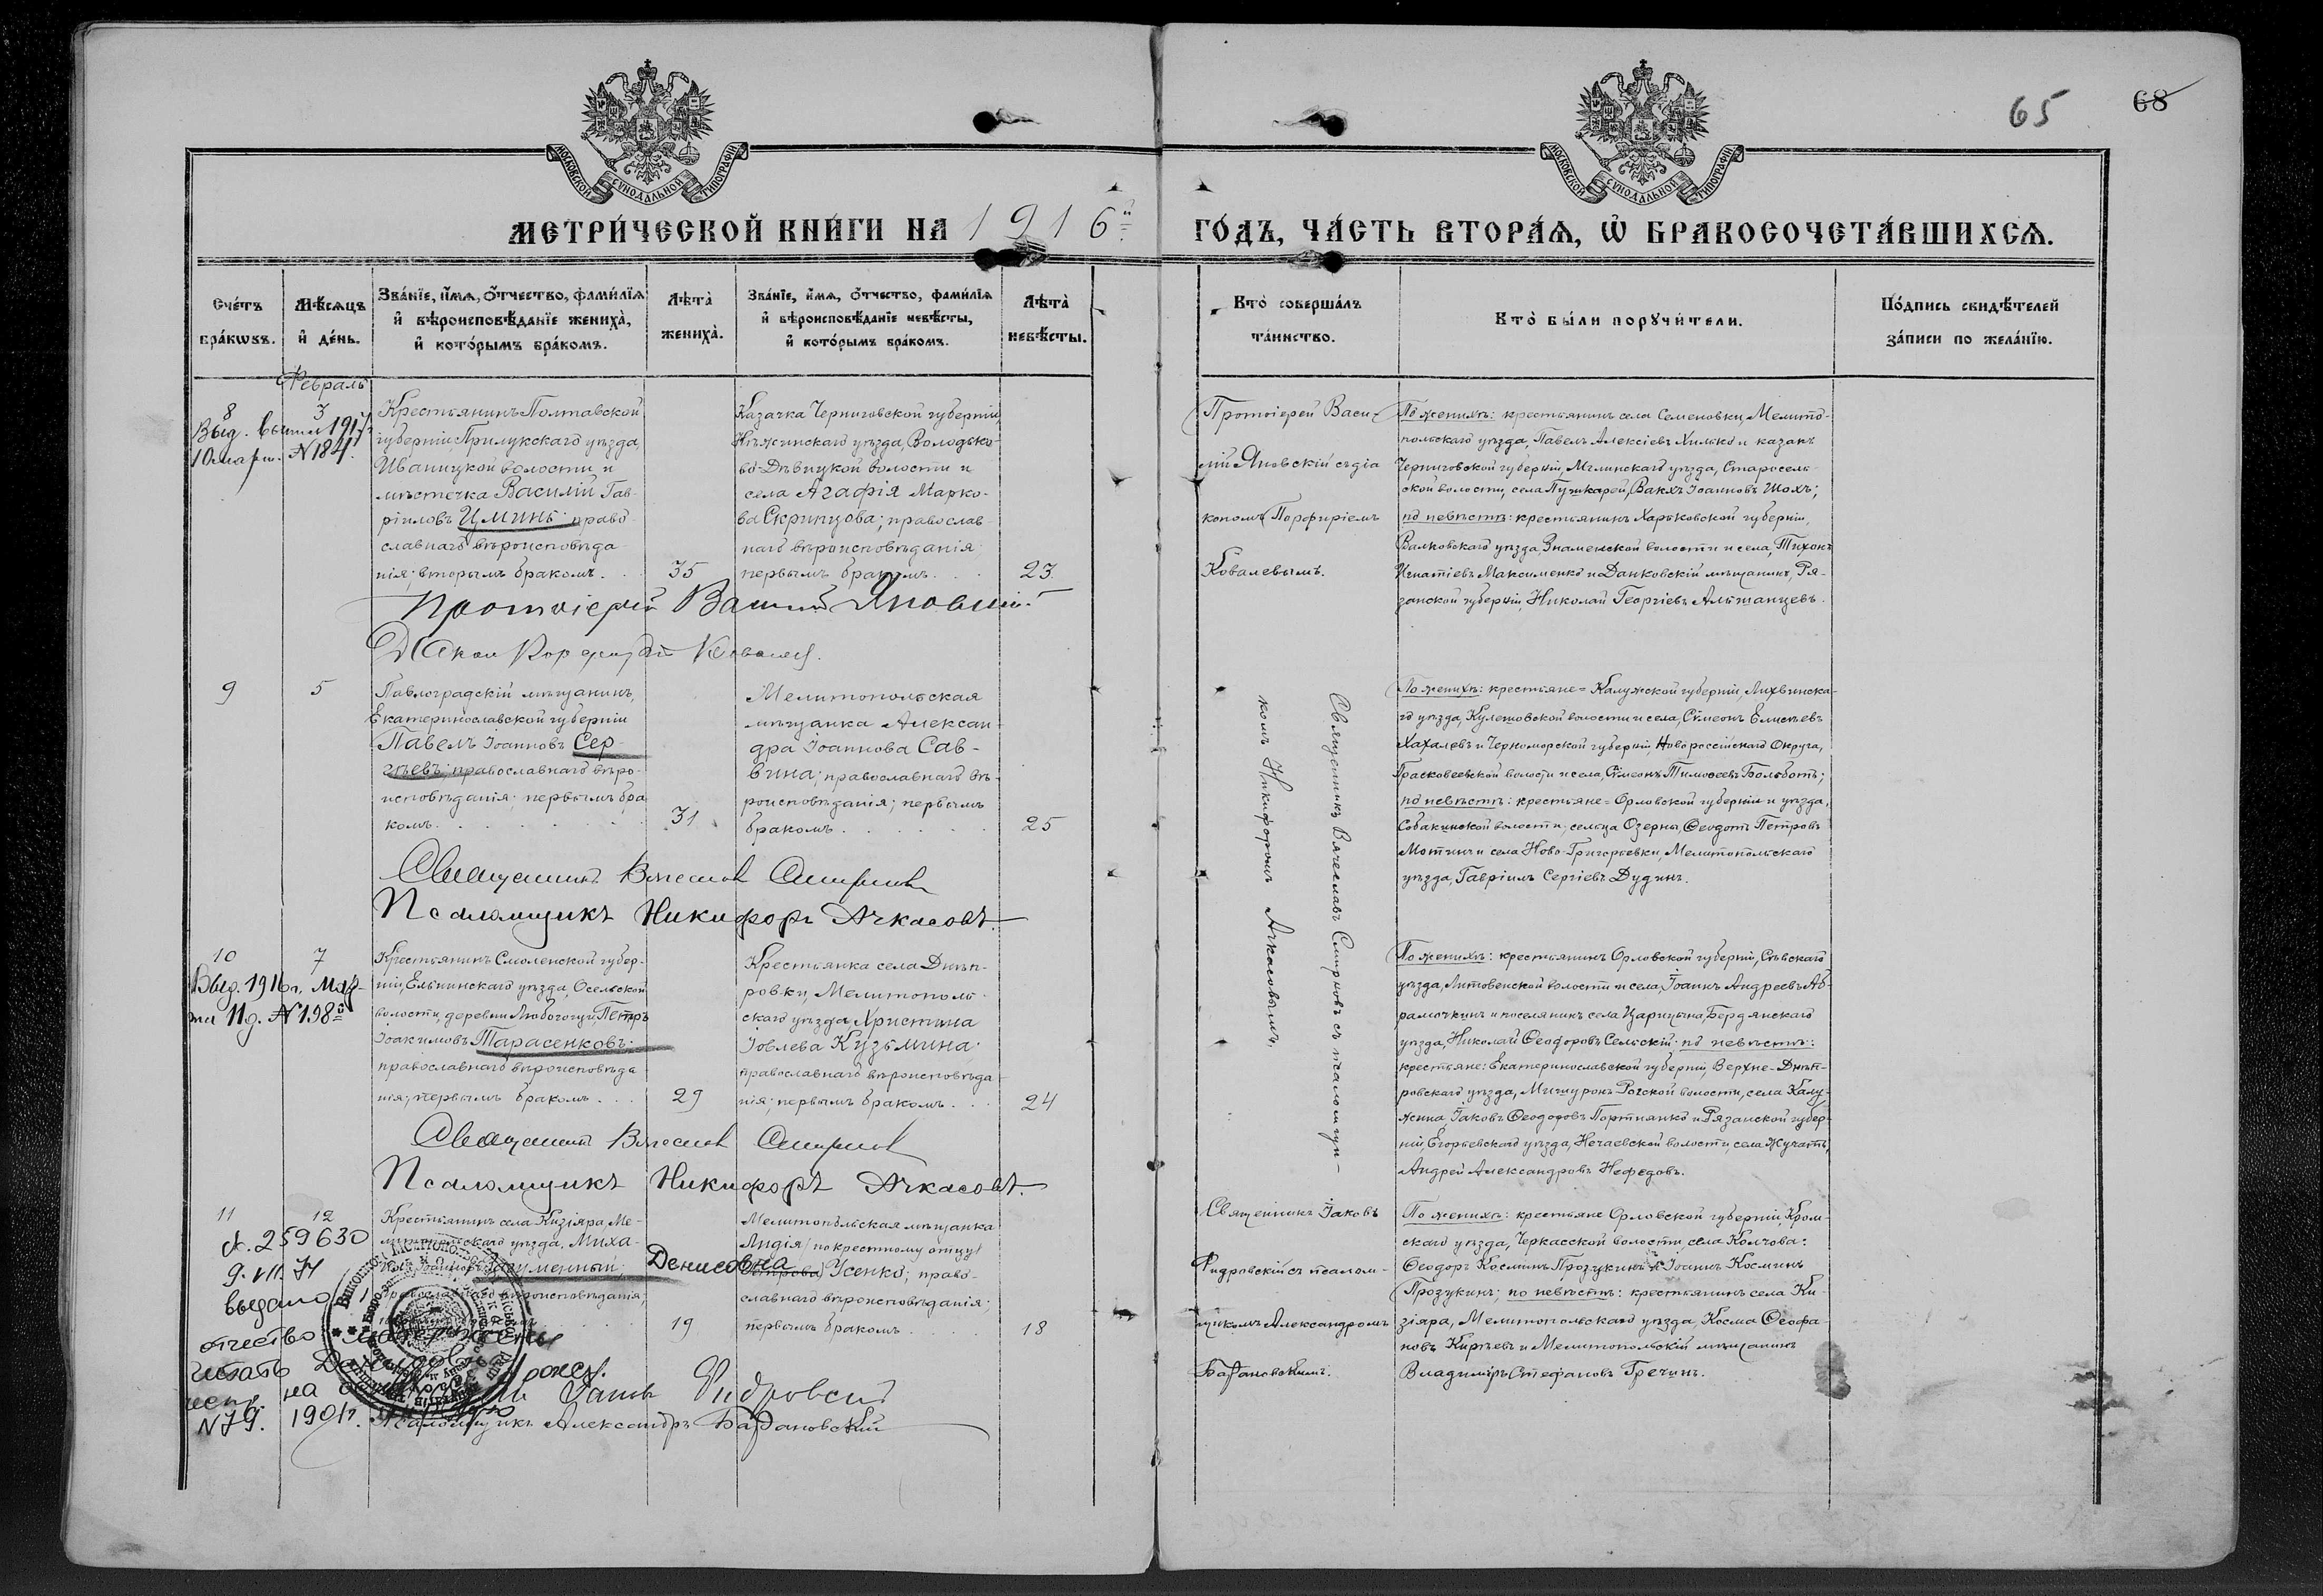 65
68
МОСКОВСКОЙ СУНОДАЛЬНОЙ ТИПОГРАФІИ
МОСКОВСКОЙ СУНОДАЛЬНОЙ ТИПОГРАФІИ
МЕТРИ́ЧЕСКОЙ КНИ́ГИ НА 1916й
ГО́ДЪ, ЧА́СТЬ ВТОРА́Я, Ѡ БРАКОСОЧЕТА́ВШИХСЯ.
Сче́тъ бра́кѡвъ.
Мѣ́сяцъ и де́нь.
Зва́нїе, и́мя, о́тчество, фами́лїя
и вѣроисповѣ́данїе жениха̀,
и кото́рымъ бра́комъ.
Лѣта̀ жениха̀.
Зва́нїе, и́мя, о́тчество, фами́лїя
и вѣроисповѣ́данїе невѣ́сты,
и кото́рымъ бра́комъ.
Лѣта̀ невѣ́сты.
Кто̀ соверша́лъ та́инство.
Кто̀ бы́ли порꙋчи́тели.
По́дпись свидѣ́телей за́писи по жела́нїю.
Февраль
8
3
Выд. 1917
10 март. №184.
Крестьянинъ Полтавской
губерніи, Прилукскаго уѣзда,
Иваницкой волости и
мѣстечка Василій Гав-
ріиловъ Цминь; право-
славнаго вѣроисповѣда
нія; вторымъ бракомъ.
35
Казачка Черниговской губерніи,
Нѣжинскаго уѣзда, Володько-
во-Дѣвицкой волости и
села Агафія Марко-
ва Скрипцова; православ-
наго вѣроисповѣданія;
первымъ бракомъ.
23
Протоіерей Васи-
лій Яновскій съ діа
кономъ Порфиріемъ
Ковалевымъ.
По женихѣ: крестьянинъ села Семеновки, Мелито-
польскаго уѣзда, Павелъ Алексіевъ Хилько и казакъ
Черниговской губерніи, Мглинскаго уѣзда, Старосель-
ской волости, села Пушкарей, Вакхъ Іоанновъ Шохъ;
по невѣстѣ: крестьянинъ Харьковской губерніи,
Валковскаго уѣзда, Знаменской волости и села, Тихонъ
Игнатіевъ Максименко и Данковскій мѣщанинъ, Ря-
занской губерніи, Николай Георгіевъ Альшанцевъ.
Протоіерей Василий Яновский
Діакон Порфирий Ковалев.
9
5
Павлоградскій мѣщанинъ,
Екатеринославской губерніи
Павелъ Іоанновъ Сер-
гѣевъ; православнаго вѣро-
исповѣданія; первымъ бра
комъ.
31
Мелитопольская
мѣщанка Алексан
дра Іоаннова Сав-
вина; православнаго вѣ-
роисповѣданія; первымъ
бракомъ.
25
Священникъ Вячеславъ Смирновъ съ псаломщи-
комъ Никифоромъ Ачкасовымъ.
По женихѣ: крестьяне = Калужской губерніи, Лихвинска-
го уѣзда, Кулешовской волости и села, Сѵмеонъ Елисѣевъ
Хахалевъ и Черноморской губерніи, Новороссійскаго Округа,
Прасковеевской волости и села, Сѵмеонъ Тимоѳеевъ Болботъ;
по невѣстѣ: крестьяне = Орловской губерніи и уѣзда,
Собакинской волости, сельца Озерны, Ѳеодотъ Петровъ
Мотинъ и села Ново-Григорьевки, Мелитопольскаго
уѣзда, Гавріилъ Сергіевъ Дудинъ.
Священникъ Вячеслав Смирнов
Псаломщикъ Никифоръ Ачкасовъ.
10
7
Выд. 1916 г. Мар-
та 11 д. №198й
Крестьянинъ Смоленской губер-
ніи, Ельнинскаго уѣзда, Осельской
волости, деревни Любогощи, Петръ
Іоакимовъ Тарасенковъ;
православнаго вѣроисповѣда
нія; первымъ бракомъ.
29
Крестьянка села Днѣп-
ровки, Мелитополь-
скаго уѣзда, Христина
Іовлева Кузьмина;
православнаго вѣроисповѣда
нія; первымъ бракомъ.
24
По женихѣ: крестьянинъ Орловской губерніи, Сѣвскаго
уѣзда, Литовенской волости и села, Іоаннъ Андреевъ Аб-
рамочкинъ и поселянинъ села Царицына, Бердянскаго
уѣзда, Николай Ѳеодоровъ Сельскій; по невѣстѣ:
крестьяне: Екатеринославской губерніи, Верхне-Днѣп-
ровскаго уѣзда, Мишуронъ Рогской волости, села Калу-
жина, Іаковъ Ѳеодоровъ Портнянко и Рязанской губер-
ніи, Егорьевскаго уѣзда, Нечаевской волости, села Жучатъ,
Андрей Александровъ Нефедовъ.
Священникъ Вячеслав Смирнов
Псаломщикъ Никифоръ Ачкасовъ.
11
12
А. 259630
9. VII.
выдано
отчество
читать
испр. на
№79. 1901г.
Крестьянинъ села Кизіяра, Ме-
литопольскаго уѣзда, Миха-
илъ Іоанновъ
православнаго вѣроисповѣданія;
19
Мелитопольская мѣщанка
Лидія /по крестному отцу/
Денисовна
Усенко; право-
славнаго вѣроисповѣданія;
первымъ бракомъ.
18
Священникъ Іаковъ
Фидровскій съ псалом-
щикомъ Александромъ
Бафановскимъ.
По женихѣ: крестьяне Орловской губерніи, Кром-
скаго уѣзда, Черкасской волости, села Колчова:
Ѳеодоръ Косминъ Прозукинъ и Іоаннъ Косминъ
Прозукинъ; по невѣстѣ: крестьянинъ села Ки-
зіяра, Мелитопольскаго уѣзда, Косма Ѳеофа-
новъ Киргѣевъ и Мелитопольскій мѣщанинъ
Владиміръ Стефановъ Гречинъ.
Фидровский
Псаломщикъ Александръ Бафановский